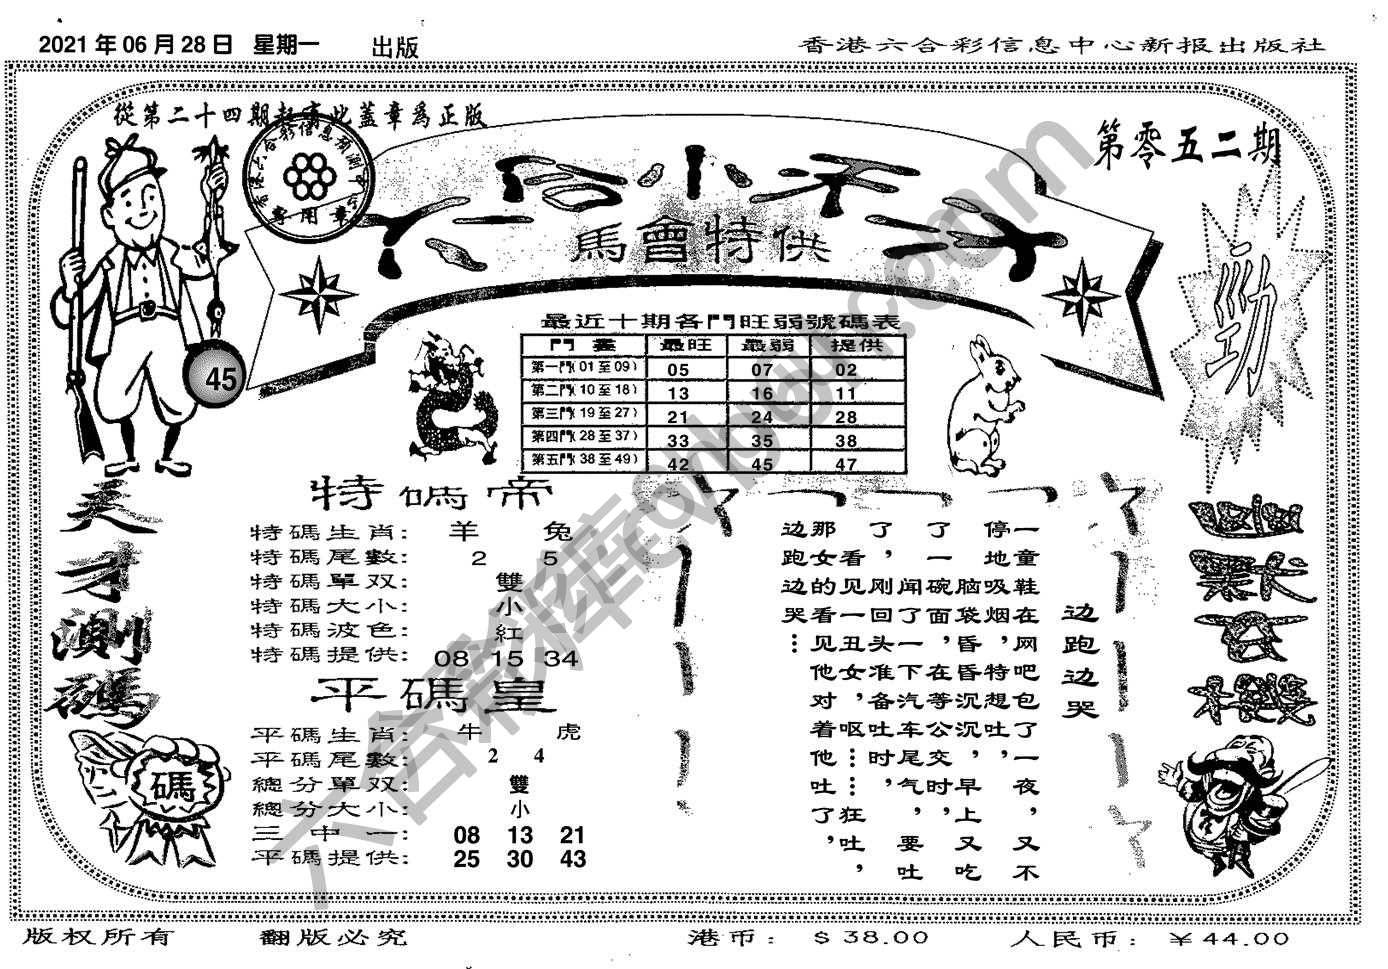 2021 年 06 月 28 日 星期一 出版
香港六合彩信息中心新报出版社
從第二十四期起憑此蓋章爲正版
第零五二期
馬會特供
勁
45
最近十期各門旺弱號碼表
門 最旺 最弱 提供
第一門(01 至 09) 05 07 02
第二門(10 至 18) 13 16 11
第三門(19 至 27) 21 24 28
第四門(28 至 37) 33 35 38
第五門(38 至 49) 42 45 47
天才測碼
碼
特碼帝
特碼生肖: 羊 兔
特碼尾數: 2 5
特碼單双: 雙
特碼大小: 小
特碼波色: 紅
特碼提供: 08 15 34
平碼皇
平碼生肖: 牛 虎
平碼尾數: 2 4
總分單双: 雙
總分大小: 小
三中一: 08 13 21
平碼提供: 25 30 43
边跑边哭
一童鞋在网吧包了一夜,又不
停地吸烟,特想吐,早上又吃
了一碗面,在等公交时,
了,刚回头准备吐时,
那女看见一丑女,呕……狂吐,
边跑边哭…
版权所有 翻版必究 港币: $ 38.00 人民币: ¥ 44.00